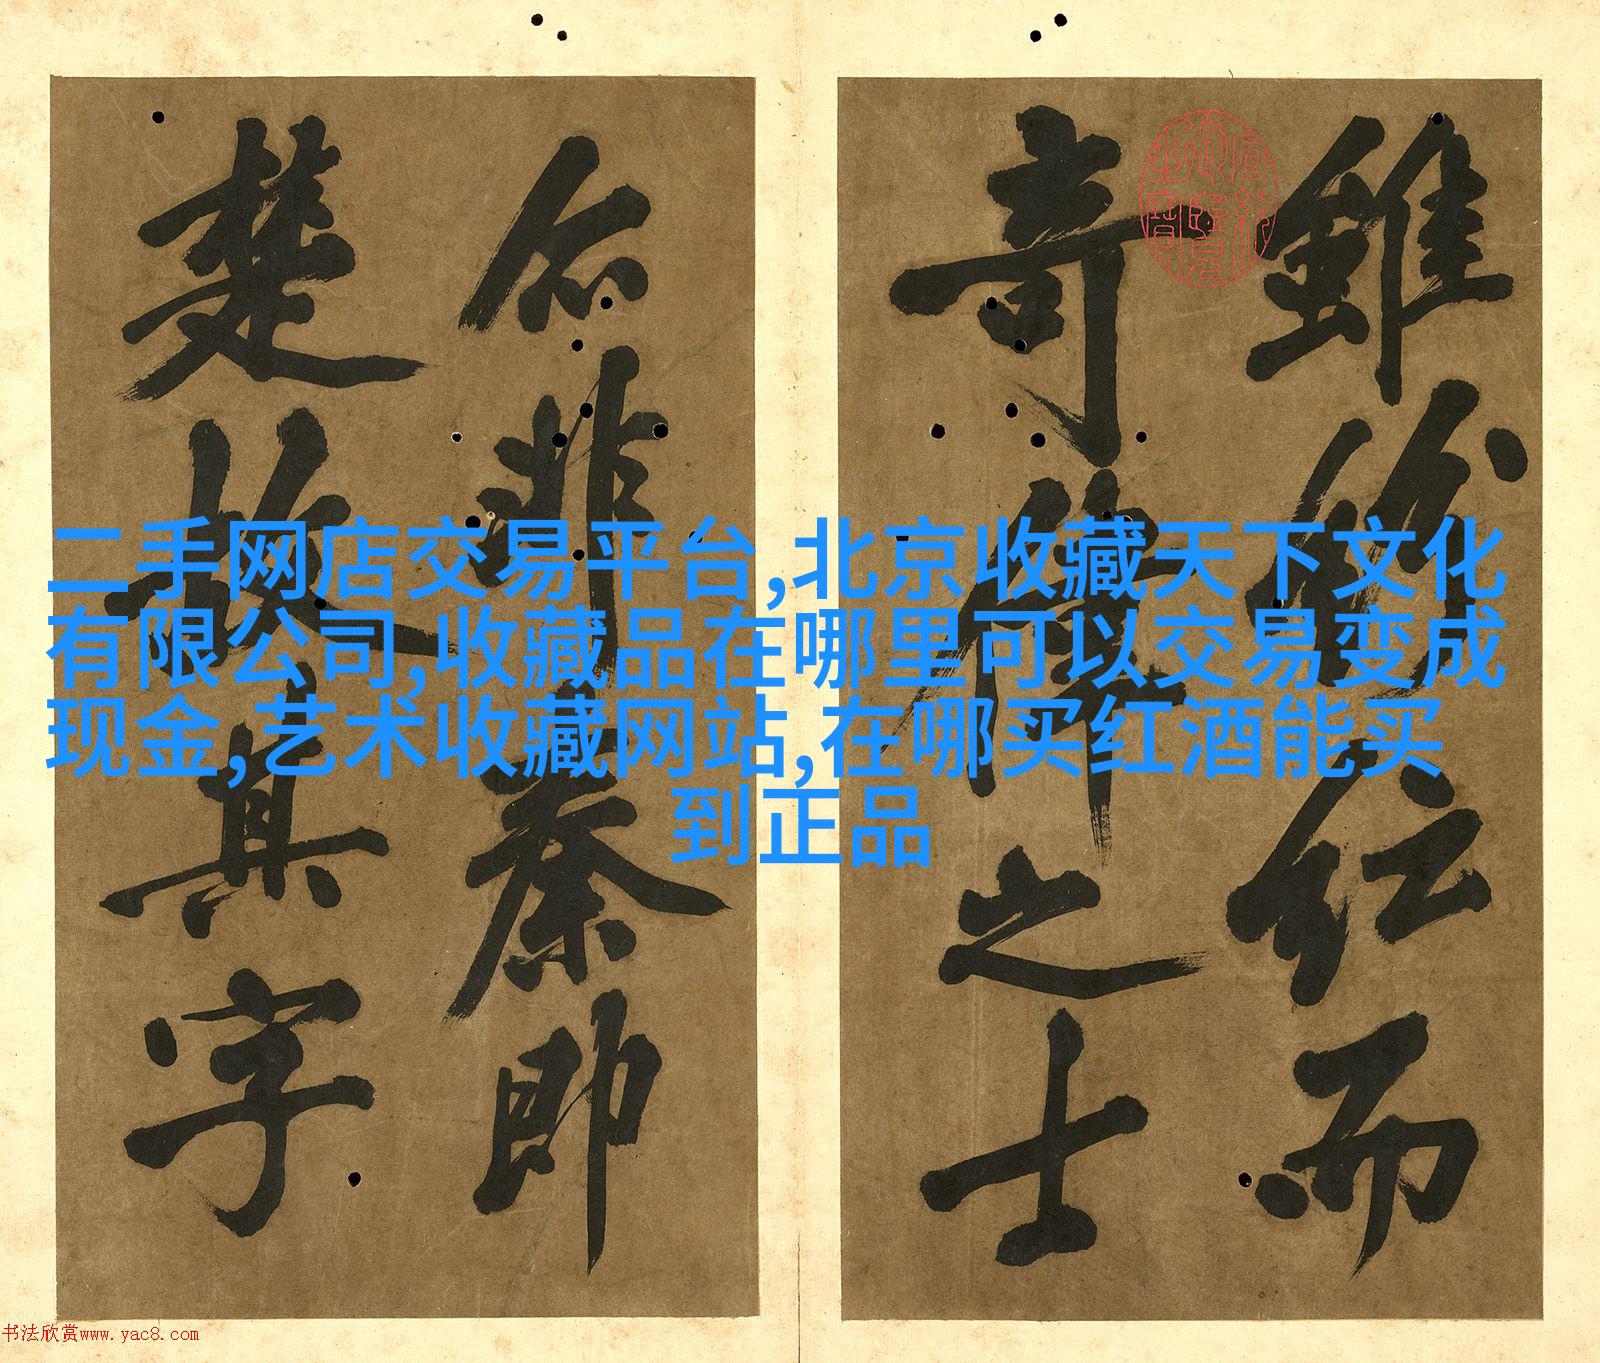 二手网店交易平台,北京收藏天下文化
有限公司,收藏品在哪里可以交易变成
现金,艺术收藏网站,在哪买红酒能买
到正品
雖仕而
奇偉之士
非秦即
楚故其字
书法欣赏www.yac8.com